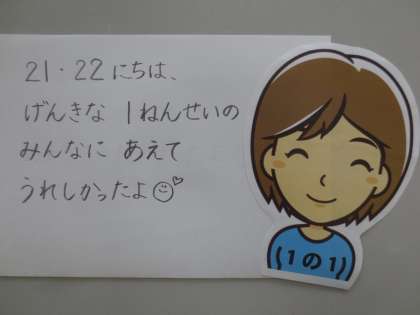 21・22にちは、
げんきな 1ねんせいの
みんなに あえて
うれしかったよ
1の1